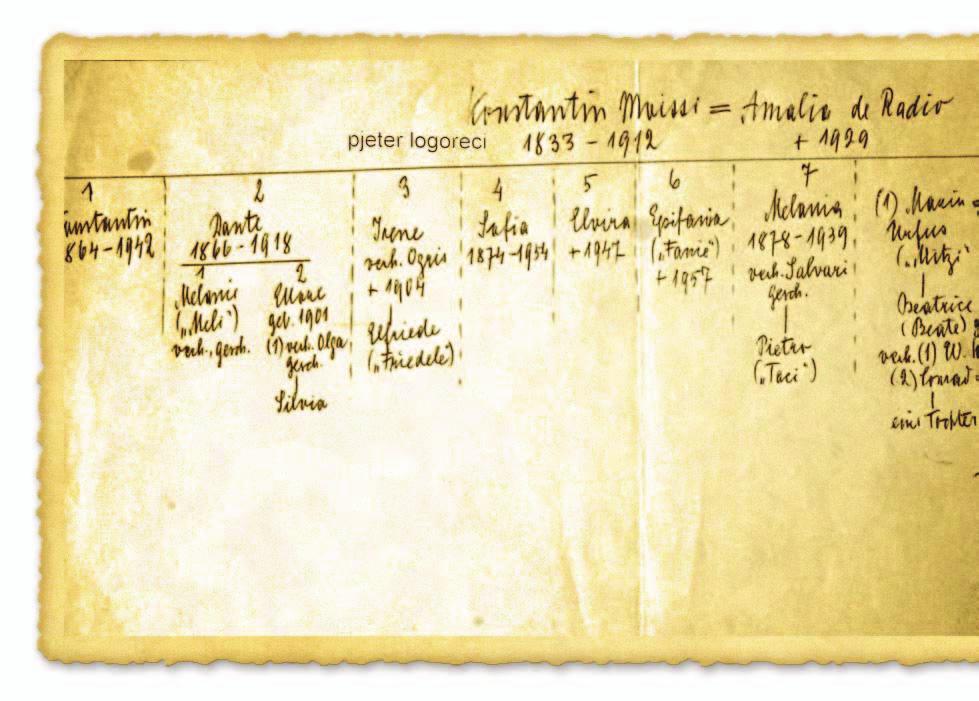 Constantin Moissi = Amalia de Radio
pjeter logoreci 1833 - 1912 + 1929
1
Constantin
1864-1942
2
Dante
1866-1918
1
Melanie
("Meli")
verh., gesch.
2
geb. 1901
(1) verh. Olga
gesch.
Silvia
3
Irene
verh. Ogris
+ 1904
Elfriede
("Friedele")
4
Sofia
1874-1934
5
Elvira
+1947
6
Epifania
("Fanie")
+ 1957
7
Melania
1878-1939
verh. Salvari
gesch.
Pietro
("Taci")
(1) Maria =
("Mitzi"
Beatrice
(Beate)
verh. (1) W.
(2) Conrad =
eine Tochter